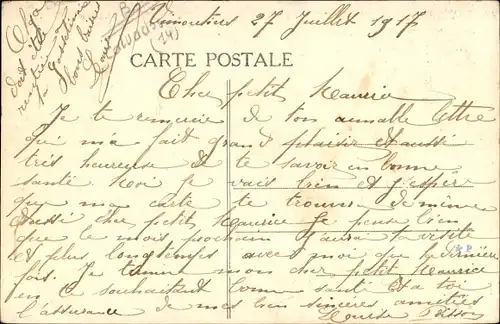 27 Juillet 1917
CARTE POSTALE
Cher petit Maurice
Je te remercie de ton aimable lettre
qui m'a fait grand plaisir et aussi
très heureuse de te savoir en bonne
santé. Moi je vais bien et j'espère
que ma carte te trouvera de même
aussi cher petit Maurice je pense bien
que le mois prochain j'aurai ta visite
et plus longtemps avec moi que la dernière
fois. Je termine mon cher petit Maurice
en te souhaitant bonne santé et à toi
l'assurance de mes bien sincères amitiés
Olga
doit être
rentrée
Calvados
(14)